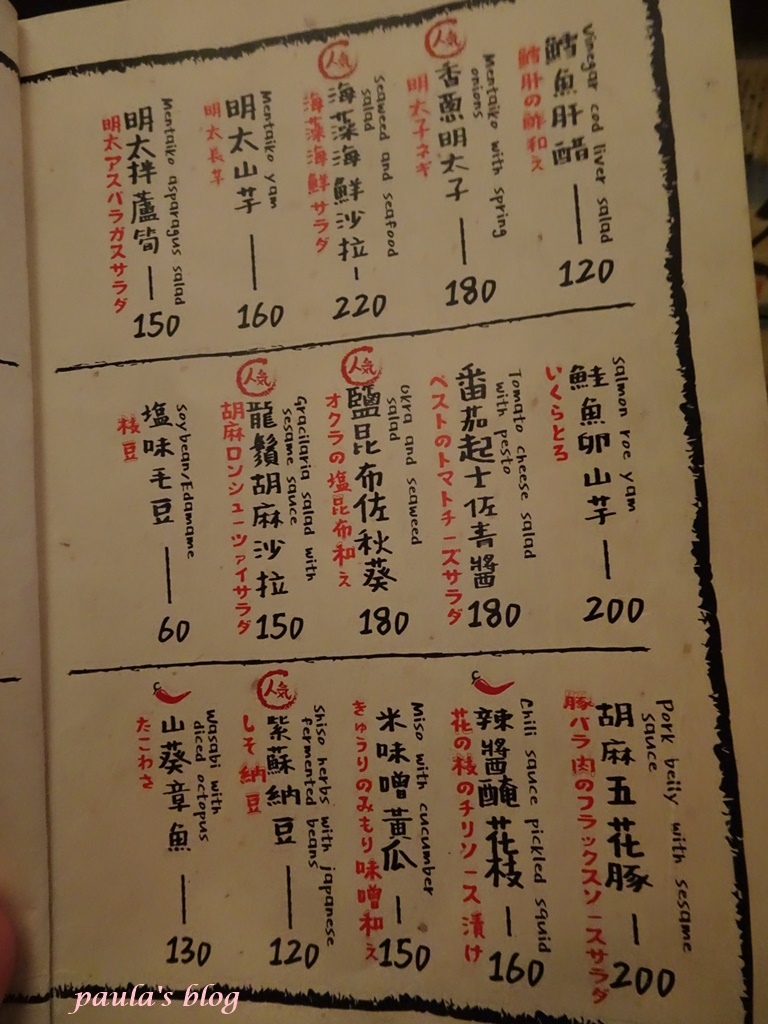 Vinegar cod liver salad
鱈魚肝醋 — 120
鱈肝の酢和え
人気
Mentaiko with spring onions
香蔥明太子 — 180
明太子ネギ
人気
Seaweed and seafood salad
海藻海鮮沙拉 — 220
海藻海鮮サラダ
Mentaiko yam
明太山芋 — 160
明太長芋
Mentaiko asparagus salad
明太拌蘆筍 — 150
明太アスパラガスサラダ
Salmon roe yam
鮭魚卵山芋 — 200
いくらとろ
Tomato cheese salad with pesto
番茄起士佐青醬 180
ペストのトマトチーズサラダ
人気
Okra and seaweed salad
鹽昆布佐秋葵 180
オクラの塩昆布和え
人気
Gracilaria salad with sesame sauce
龍鬚胡麻沙拉 150
胡麻ロンシューツァイサラダ
Soybean/Edamame
塩味毛豆 — 60
枝豆
Pork belly with sesame sauce
胡麻五花豚 — 200
豚バラ肉のフラックスソースサラダ
Chili sauce pickled squid
辣醬醃花枝 — 160
花の枝のチリソース漬け
Miso with cucumber
米味噌黃瓜 — 150
きゅうりのみもり味噌和え
人気
Shiso herbs with japanese fermented beans
紫蘇納豆 — 120
しそ納豆
Wasabi with diced octopus
山葵章魚 — 130
たこわさ
paula's blog